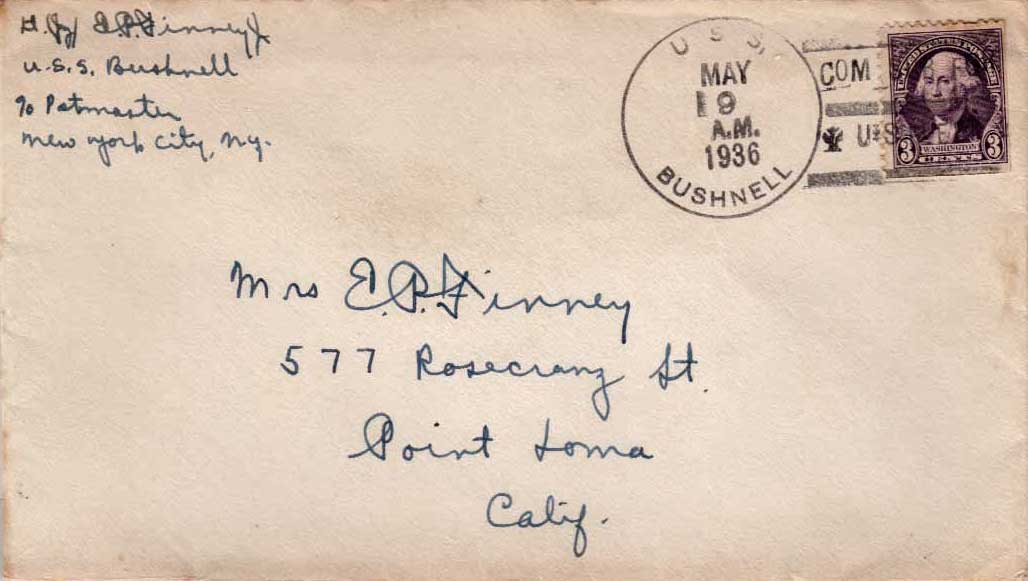 Lt. Jg E.P. Finney Jr
U.S.S. Bushnell
% Postmaster
New York City, N.Y.
U. S. S.
MAY
9
A.M.
1936
BUSHNELL
COM
U.S.
UNITED STATES POSTAGE
3 WASHINGTON 3
CENTS
Mrs E.P. Finney
577 Rosecranz St.
Point Loma
Calif.